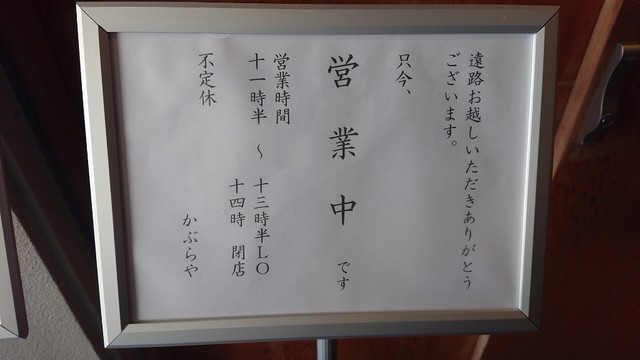 遠路お越しいただきありがとう
ございます。
只今、
営業中 です
営業時間
十一時半 ～ 十三時半LO
十四時 閉店
不定休
かぶらや